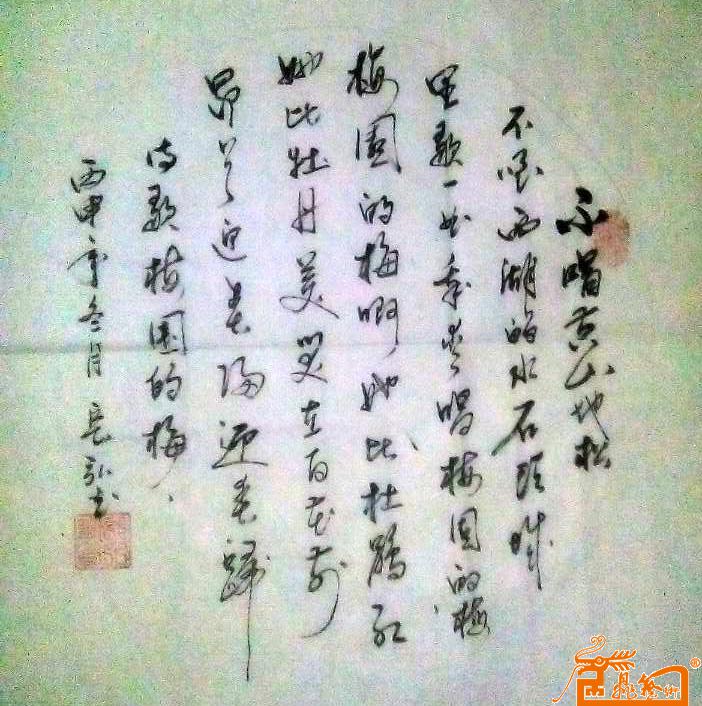 不唱黄山地松
不唱西湖的水石头城
里歌一曲我爱唱梅园的梅
梅园的梅啊她比杜鹃红
她比牡丹美笑在百花前
昂首迎春归迎春归
诗歌梅园的梅
丙申年冬月长弘书